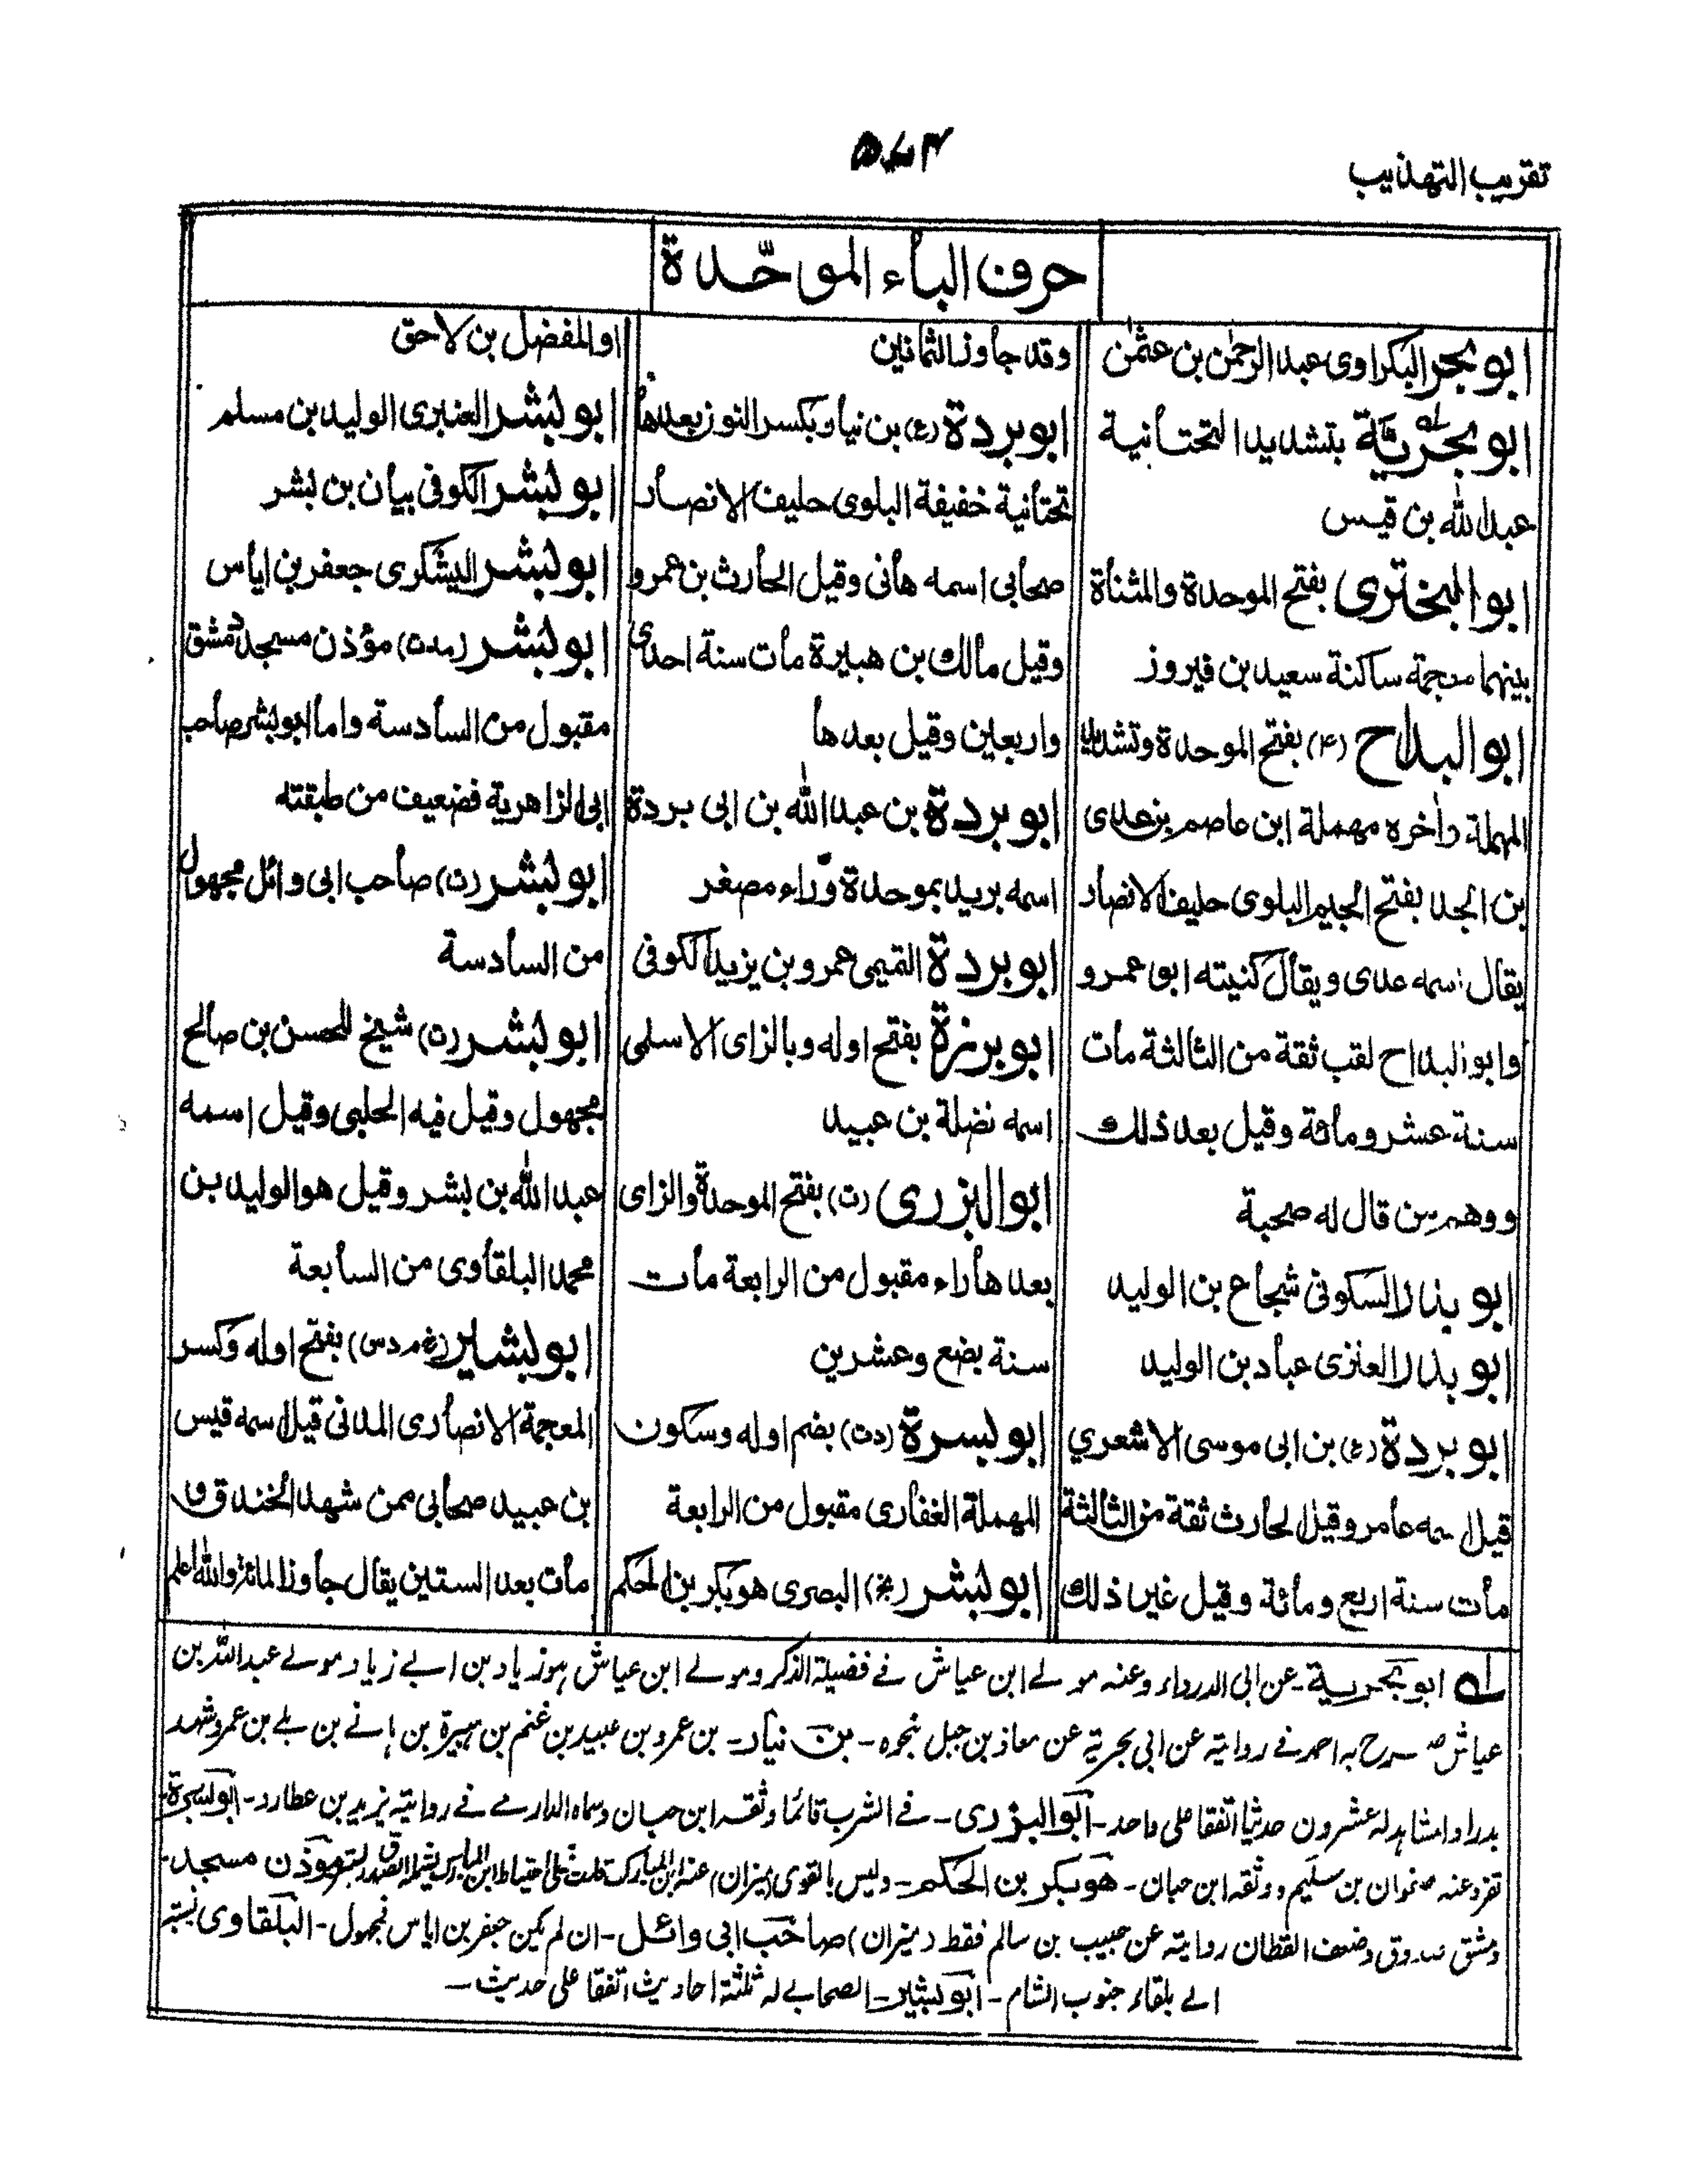 تقريب التهذيب
۵۷۴
حرف الباء الموحّدة
ابو بحر البكراوى عبد الرحمٰن بن عثمٰن
ابو بحريّة بتشديد التحتانية
عبد الله بن قيس
ابو البختری بفتح الموحدة والمثناة
بينهما معجمة ساكنة سعيد بن فيروز
ابو البداح (۴) بفتح الموحدة وتشديد
المهملة واٰخره مهملة ابن عاصم بن عدى
بن الجد بفتح الجيم البلوى حليف الانصار
يقال اسمه عدى ويقال كنيته ابو عمرو
وابو البداح لقب ثقة من الثالثة مات
سنة عشر ومائة وقيل بعد ذلك
ووهم من قال له صحبة
ابو بدر السكونى شجاع بن الوليد
ابو بدر العنزى عباد بن الوليد
ابو بردة (ع) بن ابى موسى الاشعري
قيل اسمه عامر وقيل الحارث ثقة من الثالثة
مات سنة اربع ومائة وقيل غير ذلك
وقد جاوز الثمانين
ابو بردة (ع) بن نيار بكسر النون بعدها
تحتانية خفيفة البلوى حليف الانصار
صحابى اسمه هانى وقيل الحارث بن عمرو
وقيل مالك بن هبيرة مات سنة احدى
واربعين وقيل بعدها
ابو بردة بن عبد الله بن ابى بردة
اسمه بريد بموحدة وّراء مصغر
ابو بردة التميمى عمرو بن يزيد الكوفى
ابو برزة بفتح اوله وبالزاى الاسلمى
اسمه نضلة بن عبيد
ابو البزرى (ت) بفتح الموحدة والزاى
بعدها راء مقبول من الرابعة مات
سنة بضع وعشرين
ابو بسرة (دت) بضم اوله وسكون
المهملة الغفارى مقبول من الرابعة
ابو بشر (بخ) البصرى هو بكر بن الحكم
او المفضل بن لاحق
ابو بشر العنبرى الوليد بن مسلم
ابو بشر الكوفى بيان بن بشر
ابو بشر اليشكرى جعفر بن اياس
ابو بشر (مدت) مؤذن مسجد دمشق
مقبول من السادسة واما ابو بشر صاحب
ابى الزاهرية فضعيف من طبقته
ابو بشر (ت) صاحب ابى وائل مجهول
من السادسة
ابو بشر (ت) شيخ للحسن بن صالح
مجهول وقيل فيه الحلبى وقيل اسمه
عبد الله بن بشر وقيل هو الوليد بن
محمد البلقاوى من السابعة
ابو بشير (خ م د س) بفتح اوله وكسر
المعجمة الانصارى المدنى قيل اسمه قيس
بن عبيد صحابى ممن شهد الخندق و
مات بعد الستين يقال جاوز المائة والله اعلم
له ابو بحرية عن ابى الدرداء وعنه مولے ابن عياش فے فضيلة الذكر ومولے ابن عياش ہو زياد بن ابے زياد مولے عبد الله بن
عياش صرح به احمد فے روايته عن ابى بحرية عن معاذ بن جبل نحوه - بن نيار - بن عمرو بن عبيد بن غنم بن ہبيرة بن ہانے بن بلے بن عمرو شهد
بدرا والمشاہد له عشرون حديثا اتفقا على واحد - ابو البزرى - فے الشرب قائما وثقه ابن حبان وسماه الدارمے فے روايته يزيد بن عطارد - ابو بسرة -
تفرد عنه صفوان بن سليم ووثقه ابن حبان - هو بكر بن الحكم - وليس بالقوى (ميزان) عنه ابن المبارك قلت مؤذن مسجد -
دمشق صدوق وضعف القطان روايته عن حبيب بن سالم فقط (ميزان) صاحب ابى وائل - ان لم يكن جعفر بن اياس فمجهول - البلقاوى نسبة
الے بلقاء جنوب الشام - ابو بشير - الصحابے له ثلثة احاديث اتفقا على حديث -